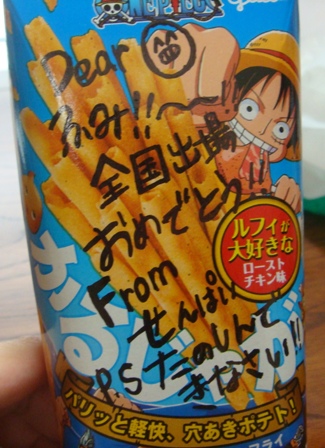 ONE PIECE
Dear
ふみ!!〜〜!!
全国出場
おめでとう!!
From
せんぱい
P.S たのしんで
きなさい!!
ルフィが
大好きな
ロースト
チキン味
かるじゃが
パリッと軽快、穴あきポテト!
フライ